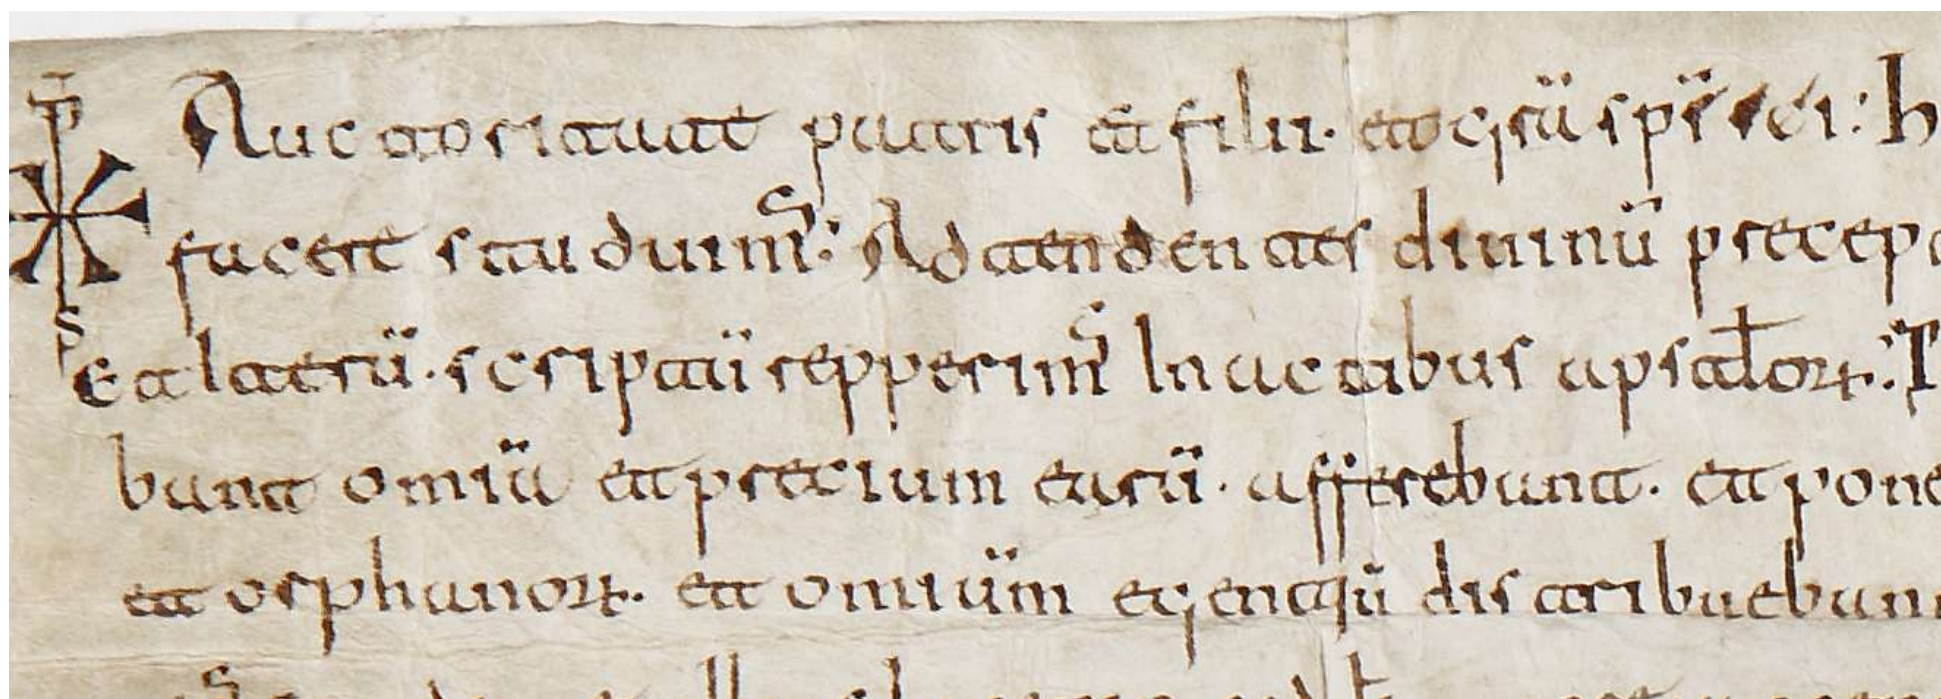 Auctoritate patris et filii. spī sci: h
facere studuimˢ: Adtendentes diuinū precep
Et laterū. scriptū repperimˢ In actibus apstłoꝝ: P
bant omiū et precium earū. afferebant. et pone
et orphanoꝝ. et omiūm egentiū distribueban